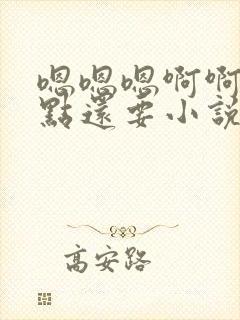 嗯嗯嗯啊啊
點還要小說
高安路